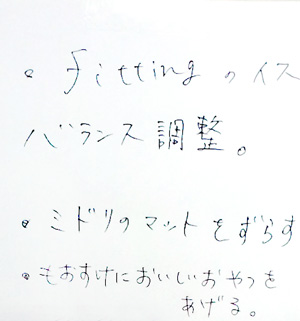 • Fittingのイス
バランス調整。
• ミドリのマットをずらす
• もおすけにおいしいおやつを
あげる。